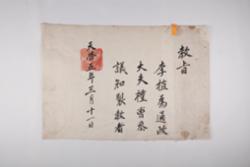 教旨
李植爲通政
大夫禮曹參
議知製教者
天啓五年三月十一日